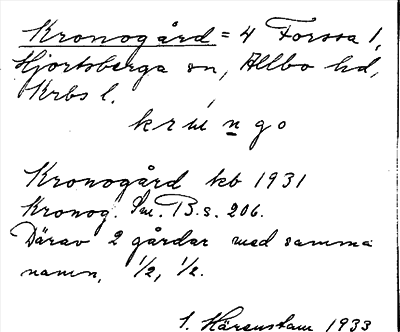 Kronogård = 4 Forssa 1,
Hjortsberga sn, Allbo hd,
Krbs l.
Kronogård kb 1931
Kronog. Sm. B. s. 206.
Därav 2 gårdar med samma
namn, 1/2, 1/2.
1. Härenstam 1933